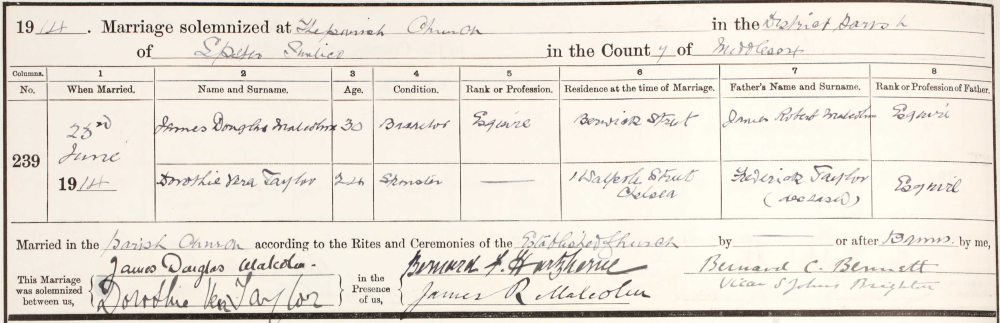 1914. Marriage solemnized at The parish Church in the District Parish
of S Peter Pimlico in the County of Middlesex
Columns. 1 2 3 4 5 6 7 8
No. When Married. Name and Surname. Age. Condition. Rank or Profession. Residence at the time of Marriage. Father's Name and Surname. Rank or Profession of Father.
239 23rd June 1914 James Douglas Malcolm 30 Bachelor Esquire Berwick Street James Robert Malcolm Esquire
Dorothie Vera Taylor 24 Spinster — 1 Walpole Street Chelsea Frederick Taylor (deceased) Esquire
Married in the parish Church according to the Rites and Ceremonies of the Established Church by — or after Banns by me,
This Marriage was solemnized between us, James Douglas Malcolm. Dorothie Vera Taylor in the Presence of us, Bernard James R Malcolm Bernard C. Bennett Vicar S Johns Brighton